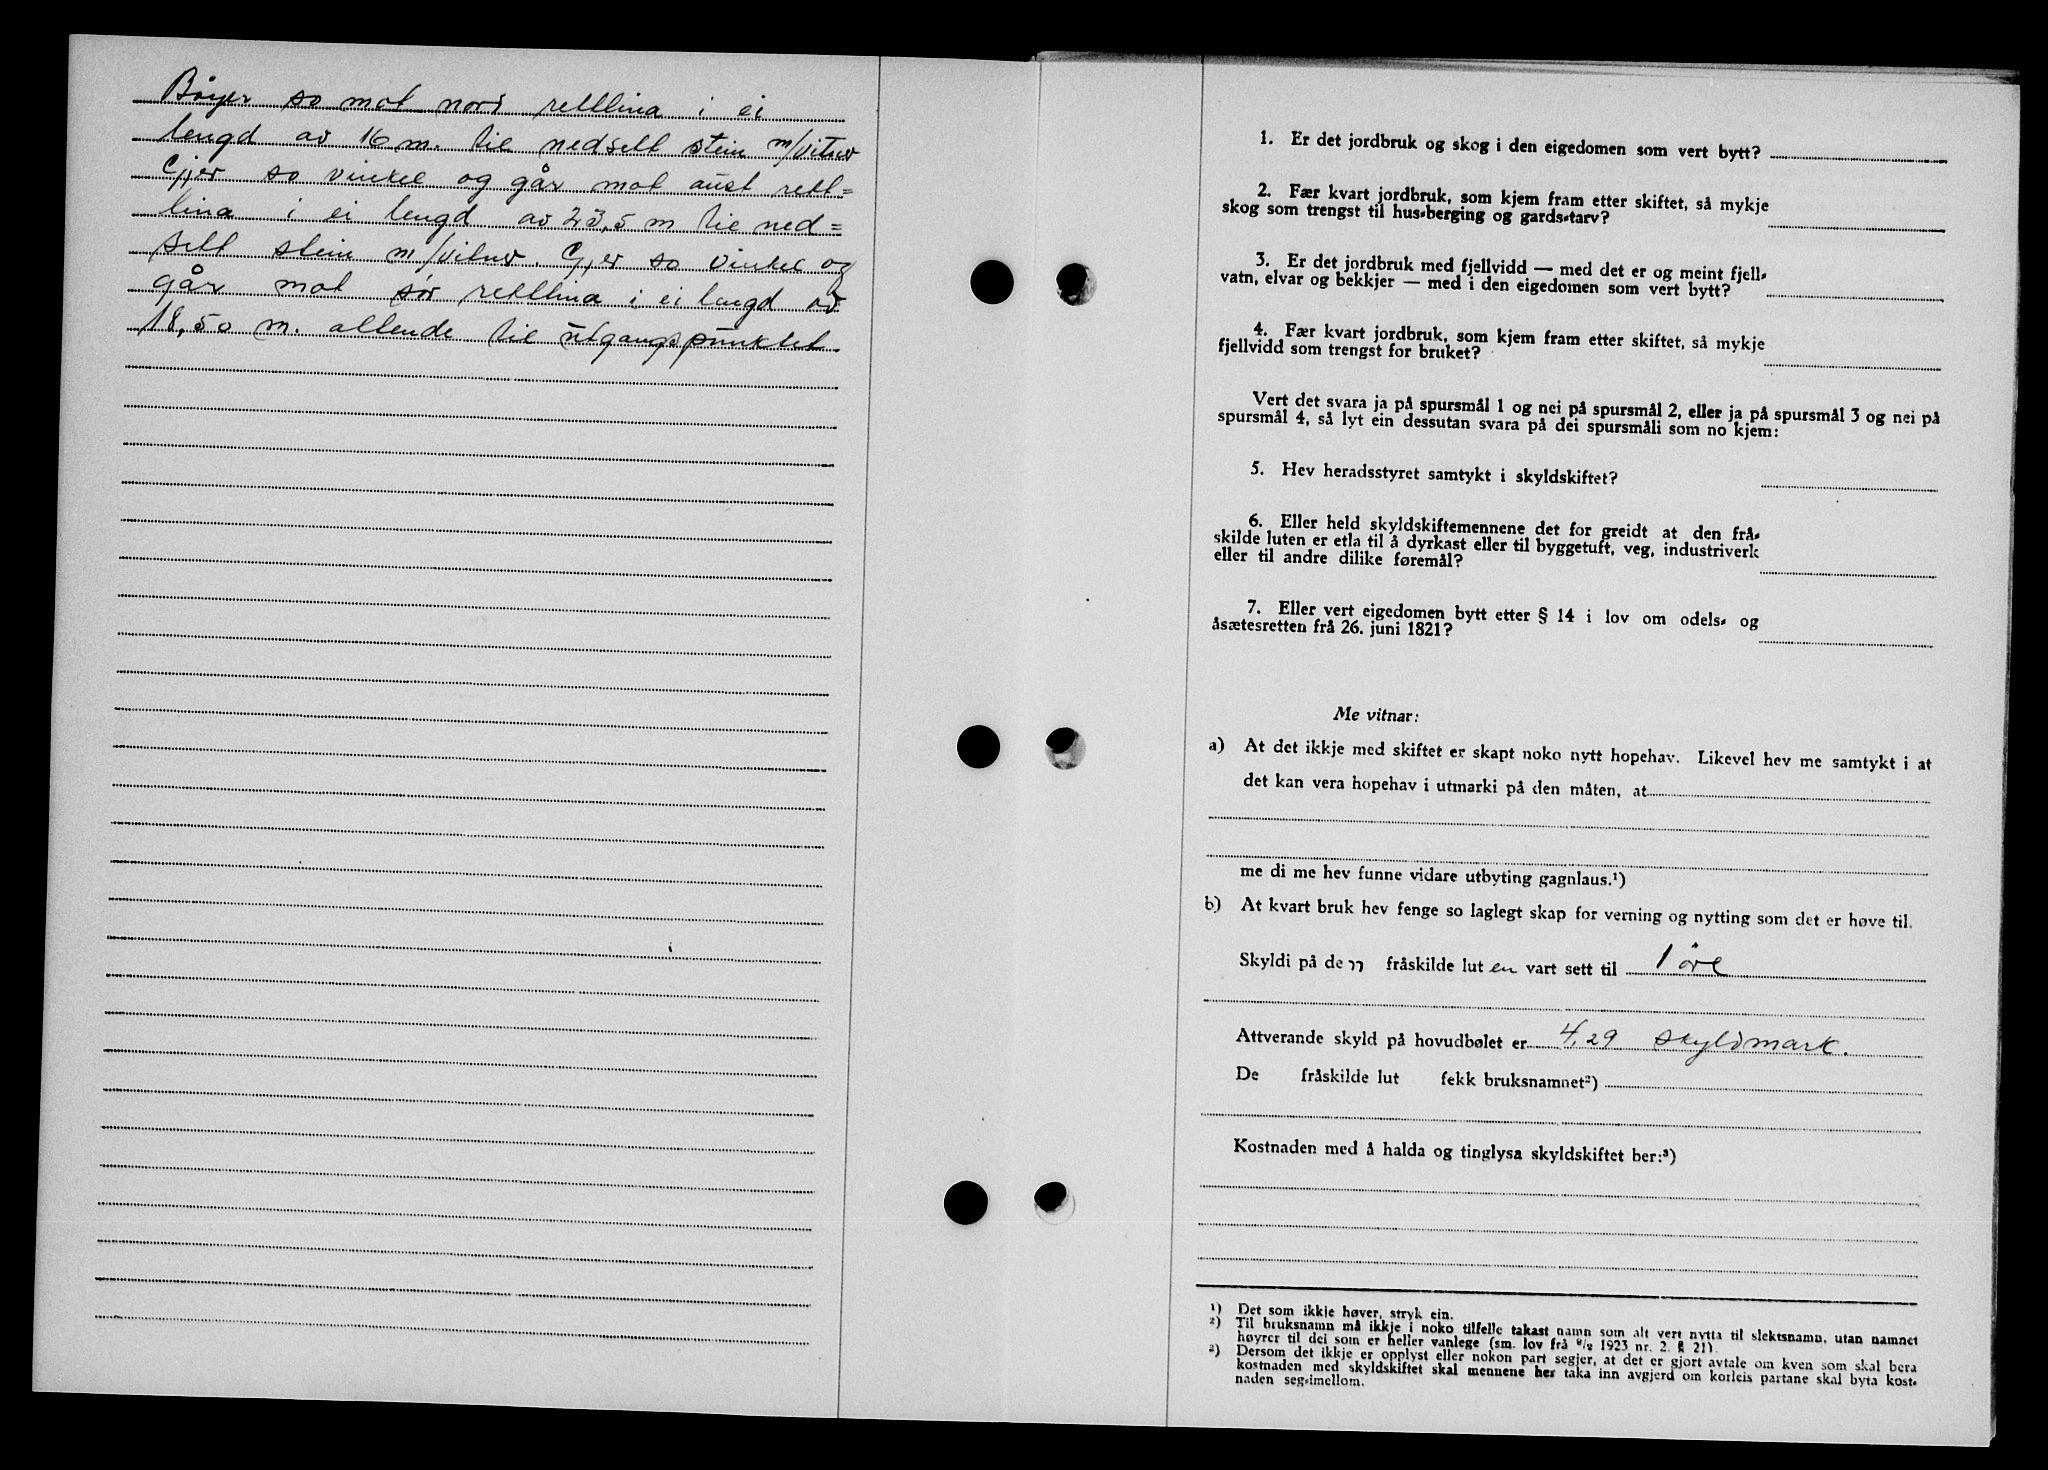 Bøyer so mot nord rettlina i ei
lengd av 16 m. til nedsett stein m/vitner
Gjer so vinkel og går mot aust rett=
lina i ei lengd av 23,5 m til ned=
sett stein m/vitner. Gjer so vinkel og
går mot sør rettlina i ei lengd av
18,50 m. attende til utgangspunktet.
1. Er det jordbruk og skog i den eigedomen som vert bytt?
2. Fær kvart jordbruk, som kjem fram etter skiftet, så mykje
skog som trengst til hus-berging og gards-tarv?
3. Er det jordbruk med fjellvidd — med det er og meint fjell-
vatn, elvar og bekkjer — med i den eigedomen som vert bytt?
4. Fær kvart jordbruk, som kjem fram etter skiftet, så mykje
fjellvidd som trengst for bruket?
Vert det svara ja på spursmål 1 og nei på spursmål 2, eller ja på spursmål 3 og nei på
spursmål 4, så lyt ein dessutan svara på dei spursmåli som no kjem:
5. Hev heradsstyret samtykt i skyldskiftet?
6. Eller held skyldskiftemennene det for greidt at den frå-
skilde luten er etla til å dyrkast eller til byggetuft, veg, industriverk
eller til andre dilike føremål?
7. Eller vert eigedomen bytt etter § 14 i lov om odels- og
åsætesretten frå 26. juni 1821?
Me vitnar:
a) At det ikkje med skiftet er skapt noko nytt hopehav. Likevel hev me samtykt i at
det kan vera hopehav i utmarki på den måten, at
me di me hev funne vidare utbyting gagnlaus.¹)
b) At kvart bruk hev fenge so laglegt skap for verning og nytting som det er høve til.
Skyldi på den fråskilde luten vart sett til 1 øre
Attverande skyld på hovudbølet er 4,29 skyldmark.
De fråskilde lut fekk bruksnamnet²)
Kostnaden med å halda og tinglysa skyldskiftet ber:³)
¹) Det som ikkje høver, stryk ein.
²) Til bruksnamn må ikkje i noko tilfelle takast namn som alt vert nytta til slektsnamn, utan namnet
høyrer til dei som er heller vanlege (sm. lov frå ⁹/₂ 1923 nr. 2. § 21).
²) Dersom det ikkje er opplyst eller nokon part segjer, at det er gjort avtale om kven som skal bera
kostnaden med skyldskiftet skal mennene her taka inn avgjerd om korleis partane skal byta kost-
naden seg-imellom.